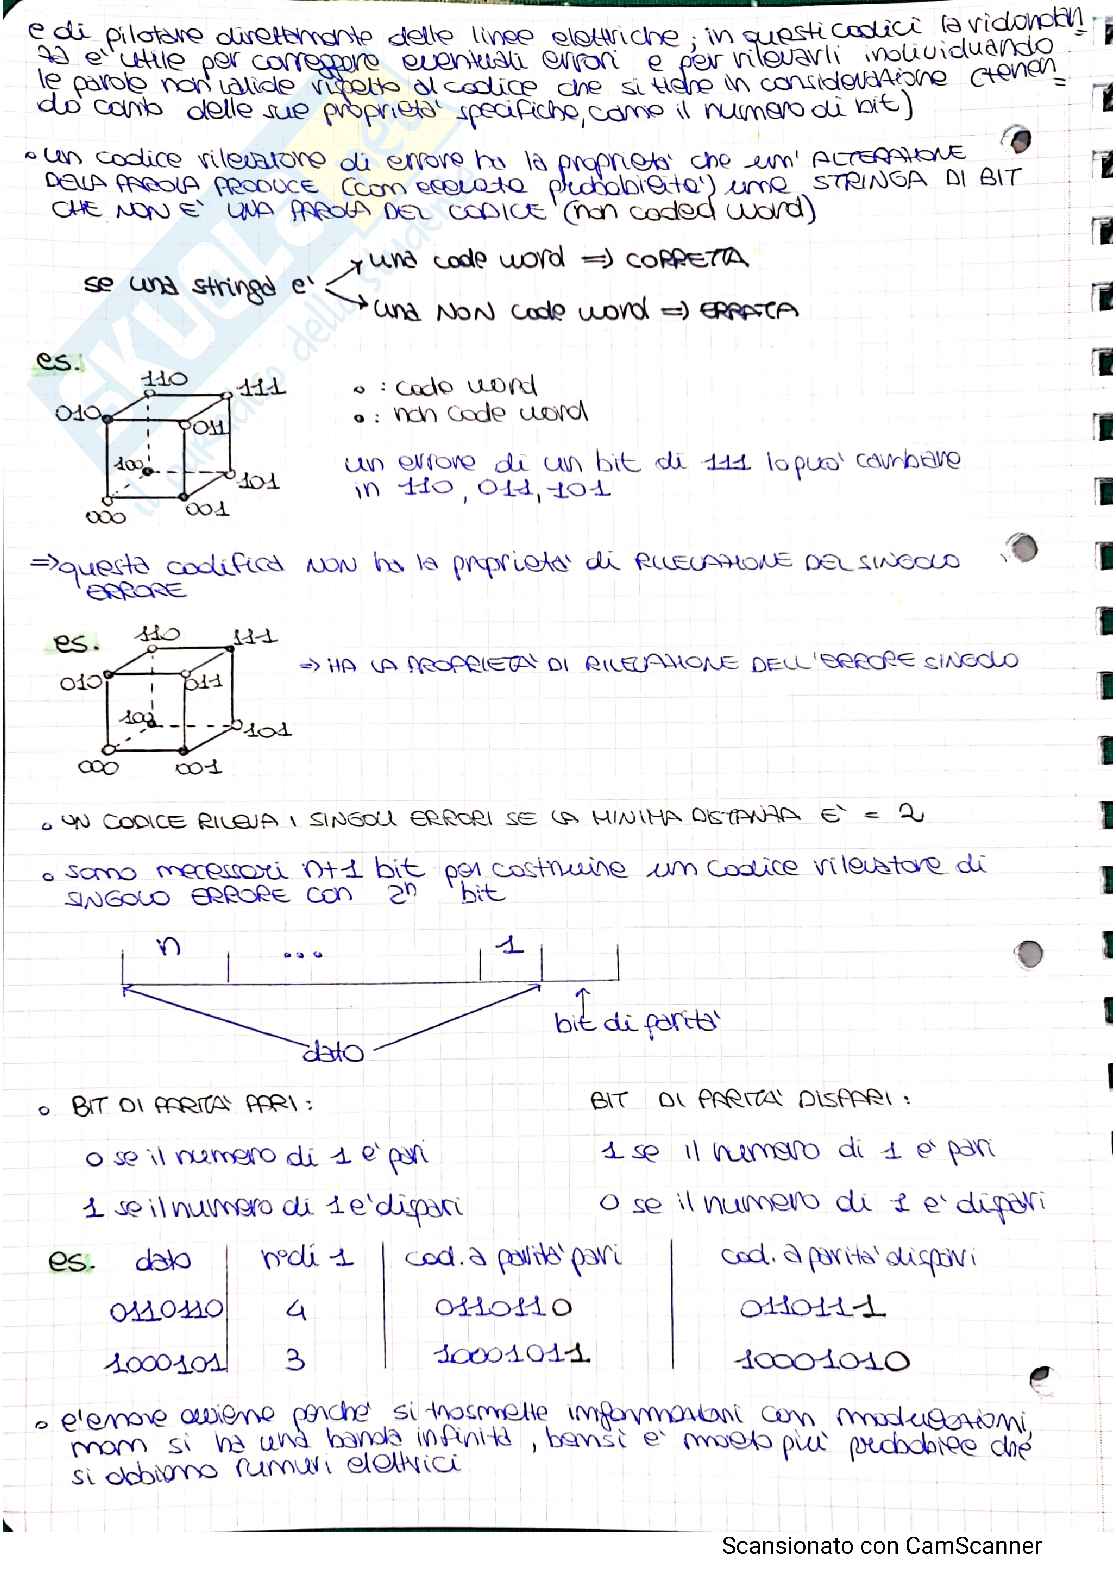 e di pilotare direttamente delle linee elettriche; in questi codici la ridondan=
za e' utile per correggere eventuali errori e per rilevarli individuando
le parole non valide rispetto al codice che si tiene in considerazione (tenen=
do conto delle sue proprieta' specifiche, come il numero di bit)
• un codice rilevatore di errore ha la proprieta' che un' ALTERAZIONE
DELLA PAROLA PRODUCE (con elevata probabilita') una STRINGA DI BIT
CHE NON E' UNA PAROLA DEL CODICE (non coded word)
una code word => CORRETTA
se una stringa e'
una NON code word => ERRATA
es.
110
111
o : code word
010
011
• : non code word
100
101
un errore di un bit di 111 lo puo' cambiare
in 110, 011, 101
000
001
=> questa codifica NON ha la proprieta' di RILEVAZIONE DEL SINGOLO
ERRORE
es.
110
111
=> HA LA PROPRIETA' DI RILEVAZIONE DELL'ERRORE SINGOLO
010
011
101
000
001
• UN CODICE RILEVA I SINGOLI ERRORI SE LA MINIMA DISTANZA E' = 2
• sono necessari n+1 bit per costruire un codice rilevatore di
SINGOLO ERRORE con 2ⁿ bit
n ... 1
bit di parita'
dato
• BIT DI PARITA' PARI:
BIT DI PARITA' DISPARI:
0 se il numero di 1 e' pari
1 se il numero di 1 e' pari
1 se il numero di 1 e' dispari
0 se il numero di 1 e' dipari
es. dato n° di 1 cod. a parita' pari cod. a parita' dispari
0110110 4 0110110 0110111
1000101 3 10001011 10001010
• l'errore avviene perche' si trasmette informazioni con modulazioni,
non si ha una banda infinita, bensi e' molto piu' probabile che
si abbiano rumuri elettrici
SKUOLA.net
il paradiso dello studente
Scansionato con CamScanner